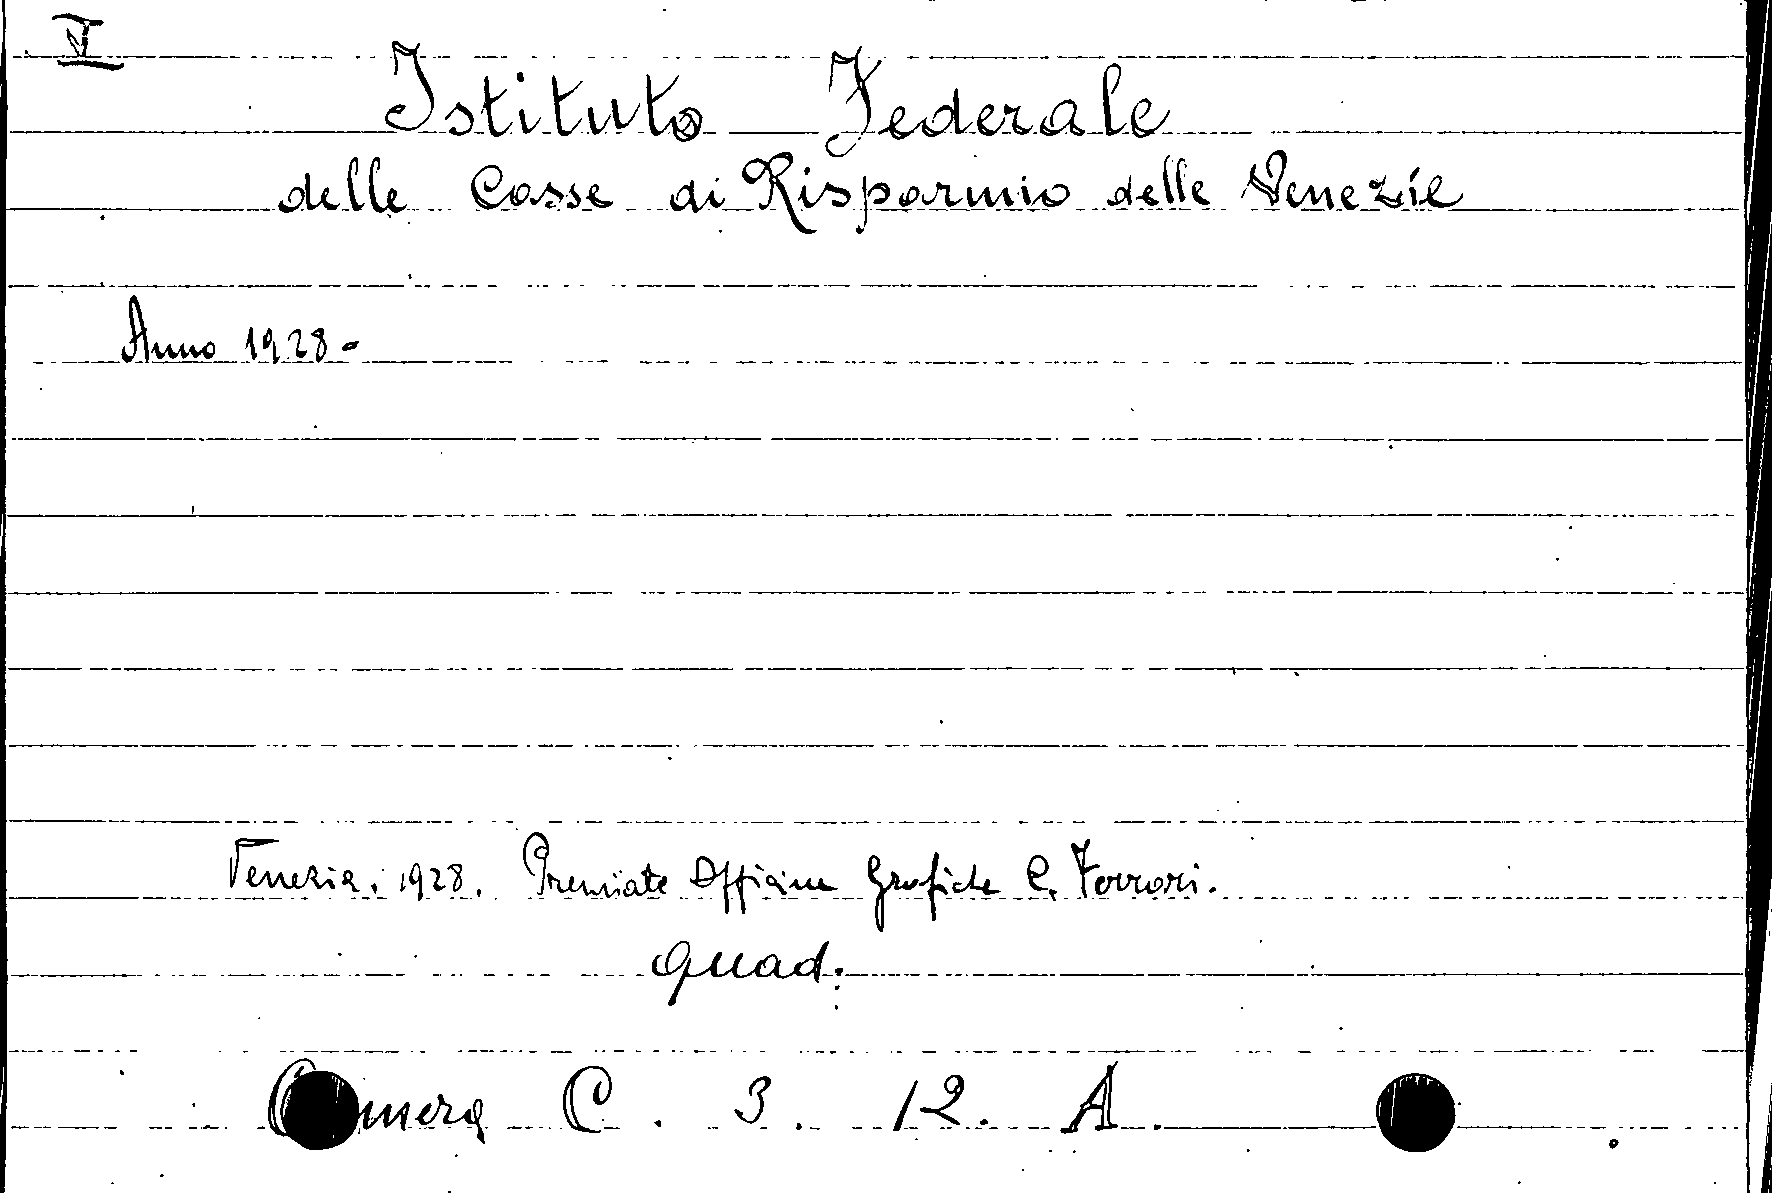 V
Istituto Federale
delle Casse di Risparmio delle Venezie
Anno 1928-
Venezia. 1928. Premiate Officine Grafiche C. Ferrari.
quad.
Camera C. 3. 12. A.